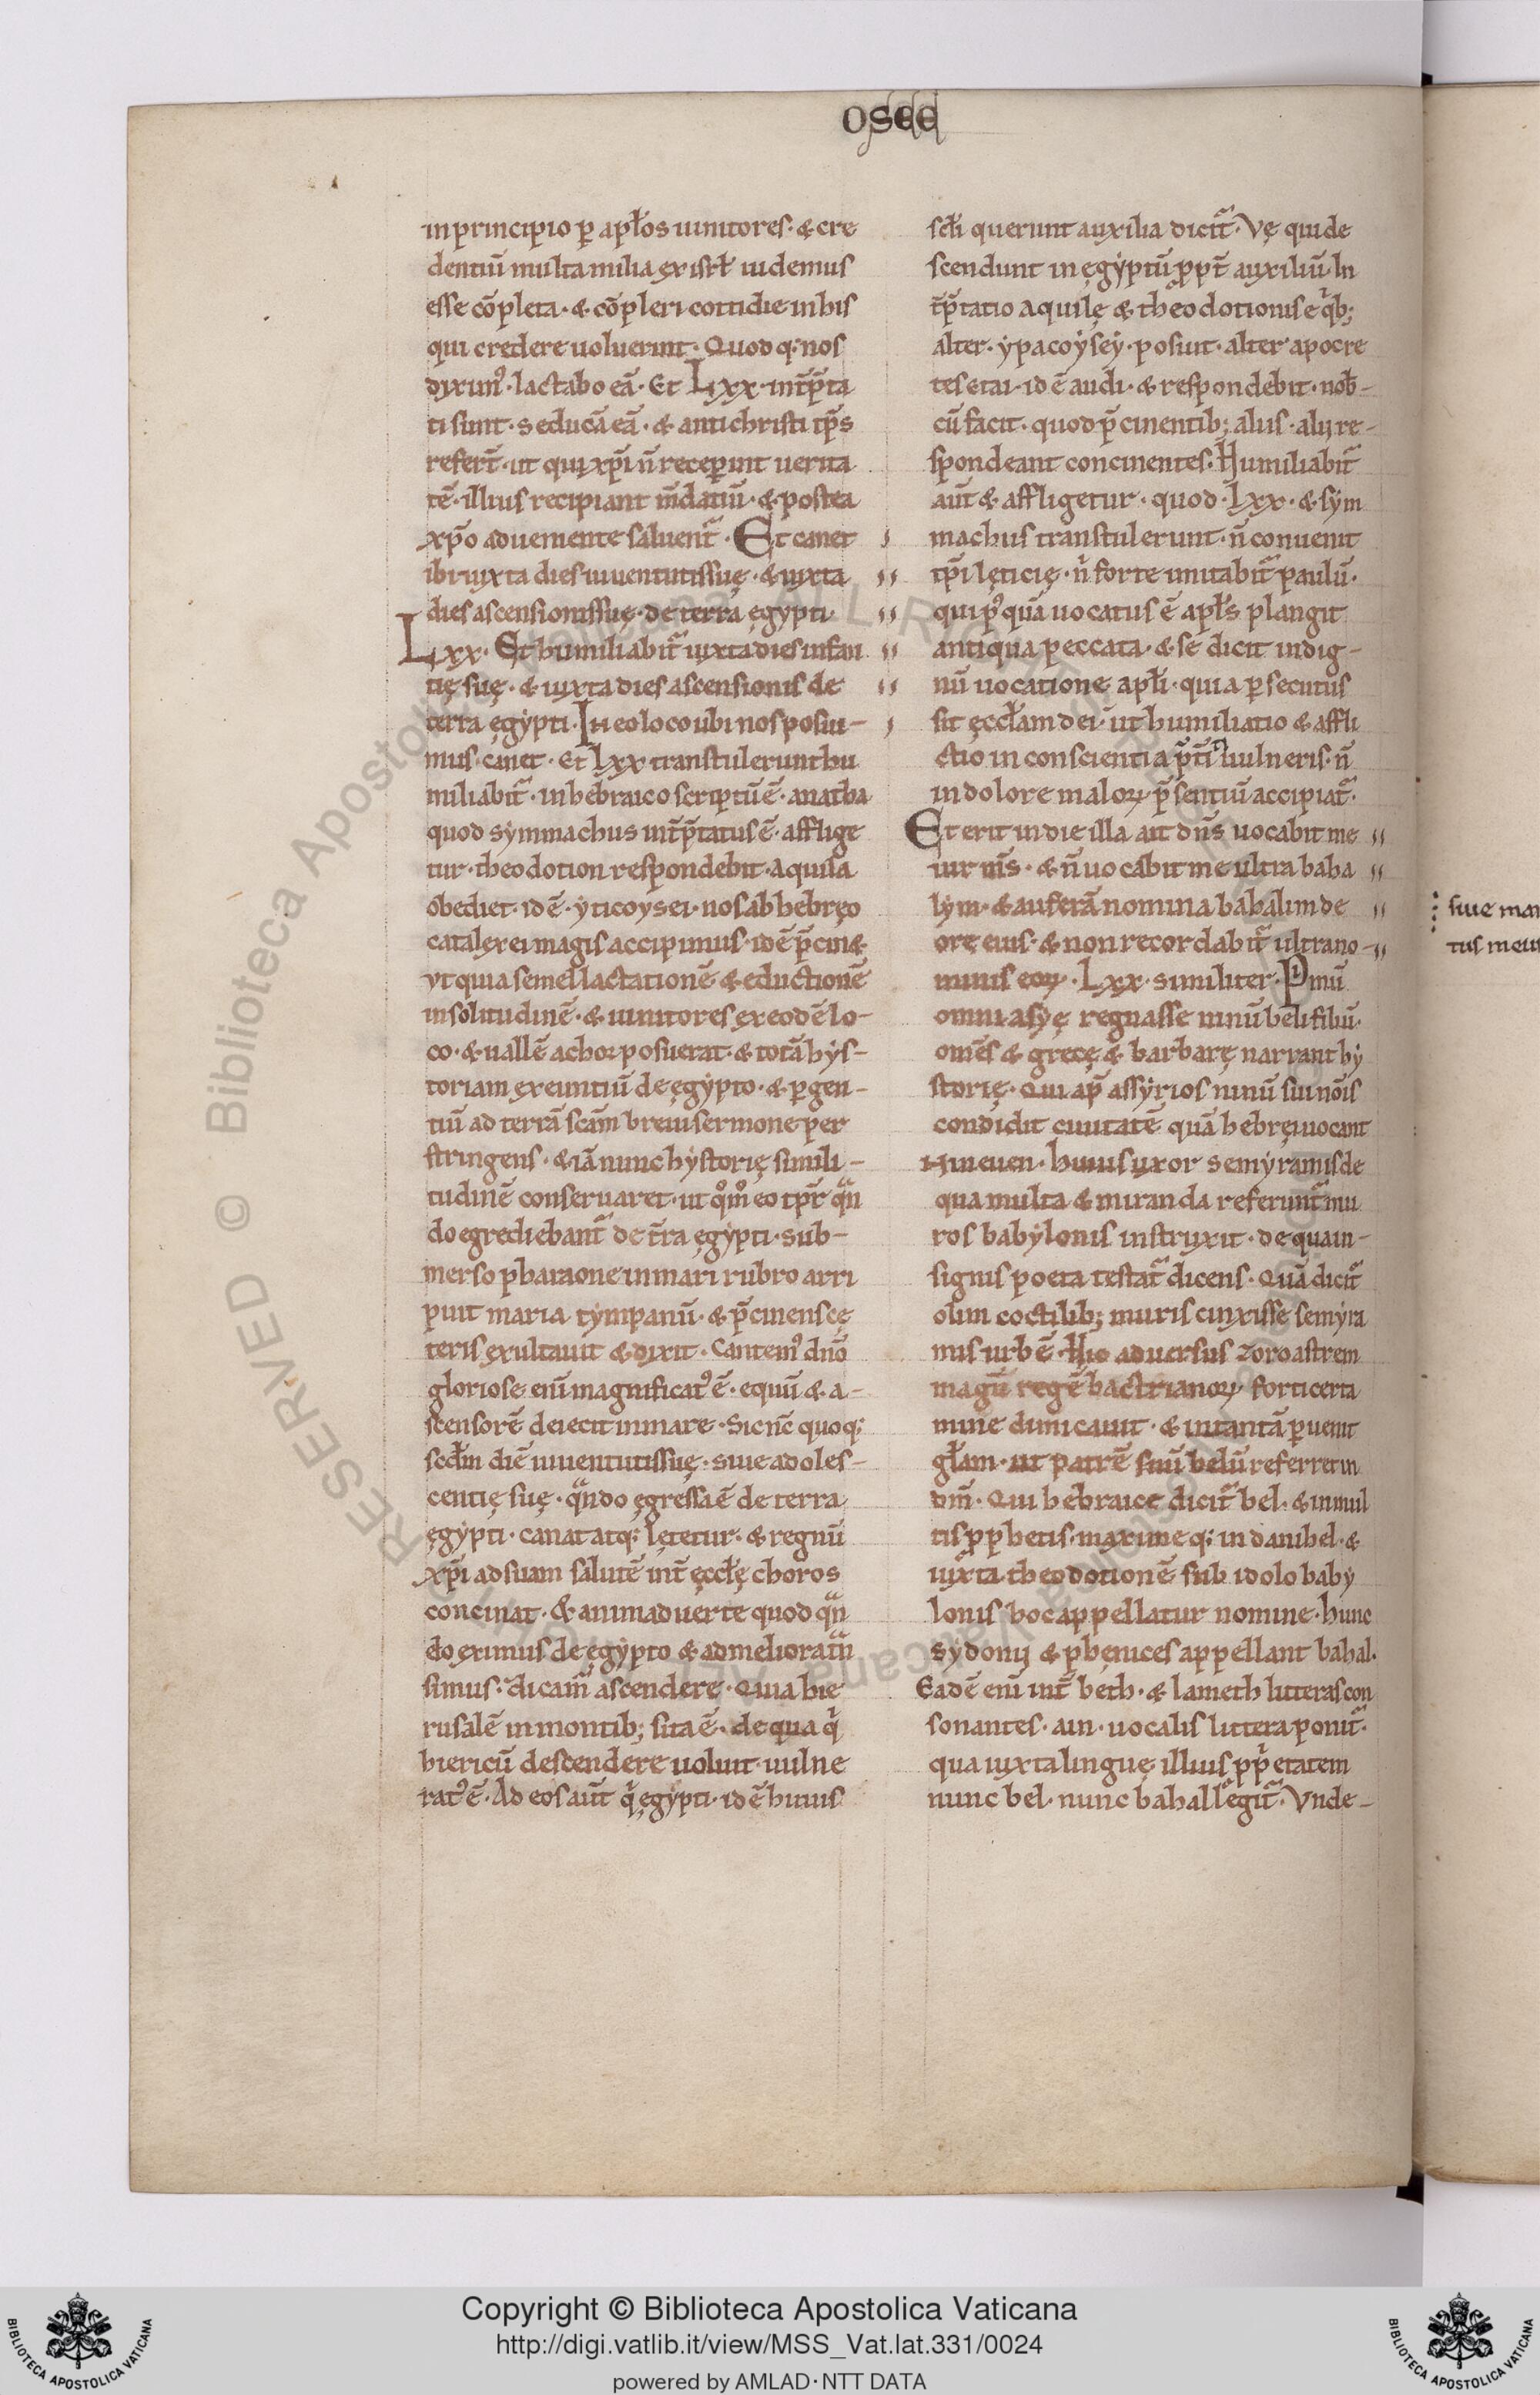 osee
in principio ꝑ apłos uinitores · & cre
dentiū multa milia existr̄ł uidemus
esse cōpleta · & cōpleri cottidie in his
qui credere uoluerint · Quod q; nos
diximꝰ · lactabo eā · Et Lxx · int̄p̄ta
ti sunt · seducā eā · & antichristi tp̄s
refert̄ · ut qui xp̄i n̄ receꝑint uerita
tē · illius recipiant m̄datiū · & postea
xp̄o adueniente saluent᷑ · Et canet
ibi iuxta dies iuuentutis suę · & iuxta
dies ascensionis suę · de terra ęgypti ·
Lxx · Et humiliabit᷑ iuxta dies infan
tię suę · & iuxta dies ascensionis de
terra ęgẏpti · In eo loco ubi nos posui-
mus · canet · Et Lxx transtulerunt hu
miliabit᷑ · in hebraico scriptū ē · anatha
quod sẏmmachus int̄p̄tatus ē · afflige
tur · theodotion respondebit · aquila
obediet · id ē · ẏticoysei · nos ab hebręo
catalexei magis accipimus · id ē p̄cin&
vt quia semel lactationē & eductionē
in solitudinē · & uinitores ex eodē lo-
co · & uallē achor posuerat · & totā hẏs-
toriam exeuntiū de ęgẏpto · & ꝑgen-
tiū ad terrā scām breui sermone per
stringens · & iā nunc hẏstorię simili-
tudinē conseruaret · ut qͦmͦ eo tpr̄ qᵃn
do egrediebant᷑ de t̄ra ęgẏpti · sub-
merso pharaone in mari rubro arri
puit maria tẏmpanū · & p̄cinens cę
teris exultauit & dixit · Cantemꝰ dnō
gloriose enī magnificatꝰ ē · equū & a-
scensorē deiecit in mare · Sic nc̄ quoq;
scdm̄ diē iuuentutis suę · siue adoles-
centię suę · qᵃndo ęgressa ē de terra
ęgẏpti · canat atq; lętetur · & regnū
xp̄i ad suam salutē int̄ ęccłę choros
concinat · & animaduerte quod qᵃn
do eximus de ęgẏpto & ad meliora tᵃn
simus · dicam᷑ ascendere · Quia hie
rusalē in montib; sita ē · de qua qⁱ
hiericū descendere uoluit · uulne
ratꝰ ē · Ad eos aūt qⁱ ęgẏpti · id ē huius
scłi querunt auxilia dicit᷑ · Vę qui de
scendunt in ęgẏptū ꝓpt̄ auxiliū · In
t̄p̄tatio aquilę & theodotionis e qⁱb;
alter · ẏpacoẏseẏ · posuit · alter apocre
tesetai · id ē audi · & respondebit · nob̄-
cū facit · quod p̄cinentib; aliis · alij re-
spondeant concinentes · Humiliabit᷑
aūt & affligetur · quod · Lxx · & sẏm
machus transtulerunt · n̄ conuenit
tp̄i lęticię · nⁱ forte imitabit᷑ paulū ·
qui pꝰquā uocatus ē apłs plangit
antiqua peccata · & se dicit indig-
nū uocatione apłi · quia ꝑsecutus
sit ęccłam dei · ut humiliatio & affli
ctio in conscientia p̄t̄i uulneris · n̄
in dolore maloꝝ p̄sentiū accipiat᷑ ·
Et erit in die illa ait dn̄s uocabit me
uir m̄s · & n̄ uocabit me ultra baha
lẏm · & auferā nomina bahalim de
ore eius · & non recordabit᷑ ultra no-
minis eoꝝ · Lxx · similiter · Pⁱmū
omni asẏę regnasse ninū beli filiū ·
om̄s & gręcę & barbarę narrant hẏ
storię · Qui ap̄ assẏrios ninū sui nōis
condidit ciuitatē quā hebręi uocant
Nineuen · huius uxor semẏramis de
qua multa & miranda referunt᷑ mu
ros babẏlonis instruxit · de qua in-
signis poeta testat᷑ dicens · Quā dicit᷑
olim coctilib; muris cinxisse semẏra
mis urbē · Hic aduersus zoroastrem
magū regē bactrianoꝝ forti certa
mine dimicauit · & in tantā ꝑuenit
głam · ut patrē suū belū referret in
dm̄ · Qui hebraice dicit᷑ bel · & in mul
tis ꝓphetis · maxime q; in danihel · &
iuxta theodotionē sub idolo babẏ
lonis hoc appellatur nomine · hunc
sẏdonij & phęnices appellant bahal ·
Eadē enī int̄ beth · & lameth litteras con
sonantes · ain · uocalis littera ponit᷑ ·
qua iuxta linguę illius ꝓpⁱetatem
nunc bel · nunc bahal legit᷑ · Vnde-
siue mari
tus meus
© Biblioteca Apostolica Vaticana
Copyright © Biblioteca Apostolica Vaticana
http://digi.vatlib.it/view/MSS_Vat.lat.331/0024
powered by AMLAD·NTT DATA
BIBLIOTECA APOSTOLICA VATICANA
BIBLIOTECA APOSTOLICA VATICANA